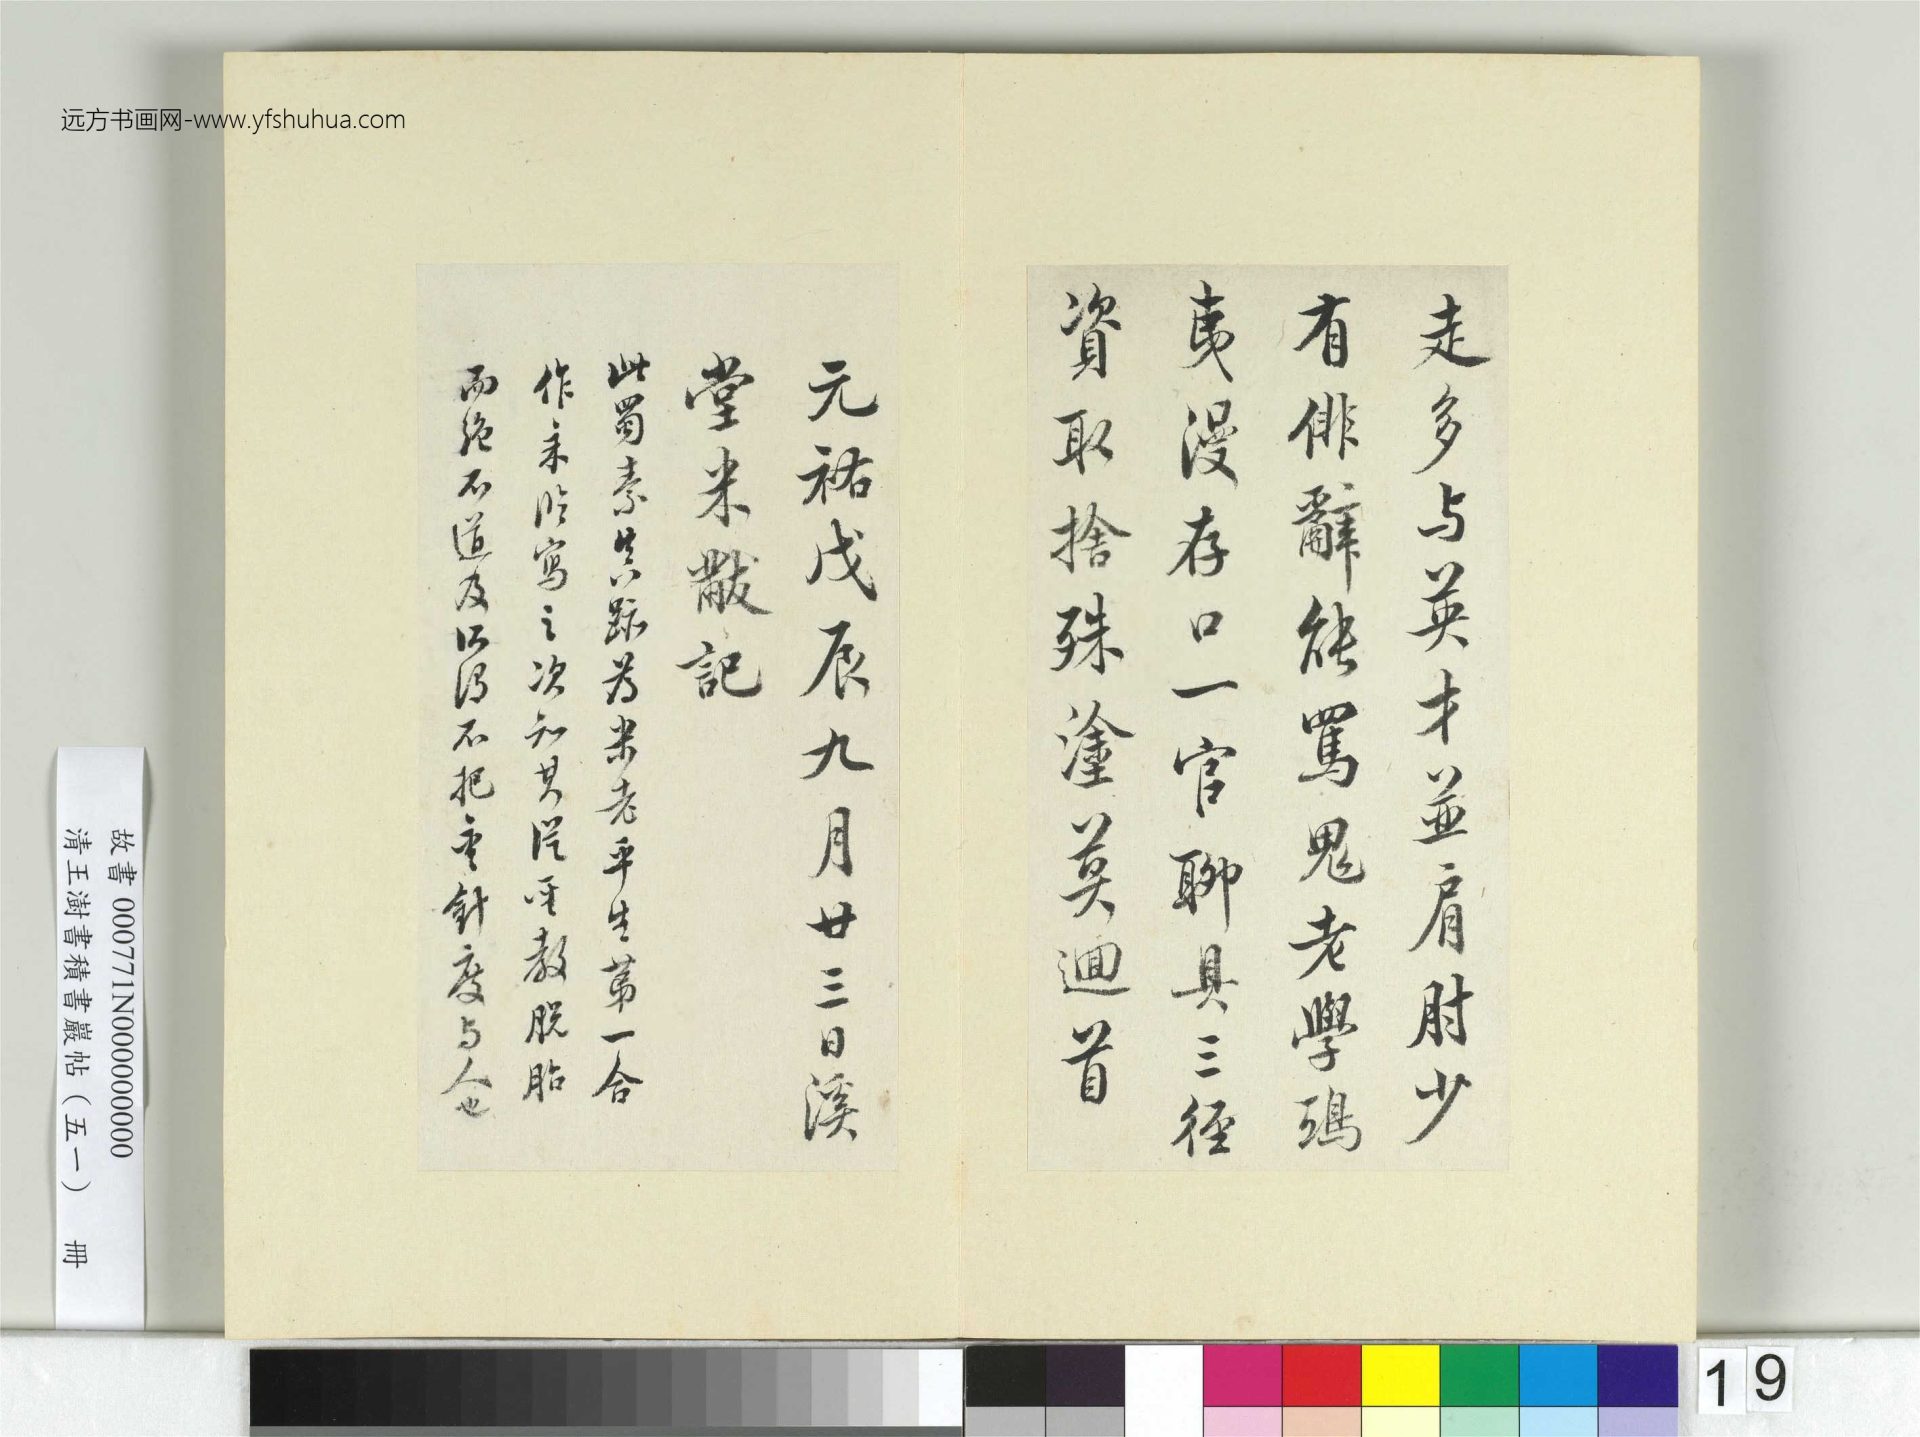 远方书画网-www.yfshuhua.com
走多与英才並肩肘少
有俳辭能罵鬼老學鴟
夷漫存口一官聊具三徑
資取捨殊塗莫迴首
元祐戊辰九月廿三日溪
堂米黻記
此蜀素真跡為米老平生第一合
作未臨寫之次知其從聖教脫胎
而絕不道及所得不把金針度与人也
故書 000771N000000000
清王澍書積書巖帖（五一） 冊
19